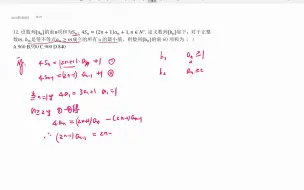 12. 设数列{aₙ}的前n项和为Sₙ, 4Sₙ = (2n + 1)aₙ + 1, n ∈ N*. 定义数列{bₙ}如下: 对于正整
数m, bₘ是使不等式aₙ ≥ m成立的所有n的最小值, 则数列{bₙ}的前60项和为( )
A.960 B.930 C.900 D.840
4Sₙ = (2n+1)aₙ + 1 ①
4Sₙ₋₁ = (2n-1)aₙ₋₁ + 1 ②
当n=1时 4a₁ = 3a₁+1 a₁=1
n≥2时 ①-②得
4aₙ = (2n+1)aₙ - (2n-1)aₙ₋₁
∴ (2n-1)aₙ₋₁ = 2n-
b₁ aₙ ≥1
b₂ aₙ ≥2